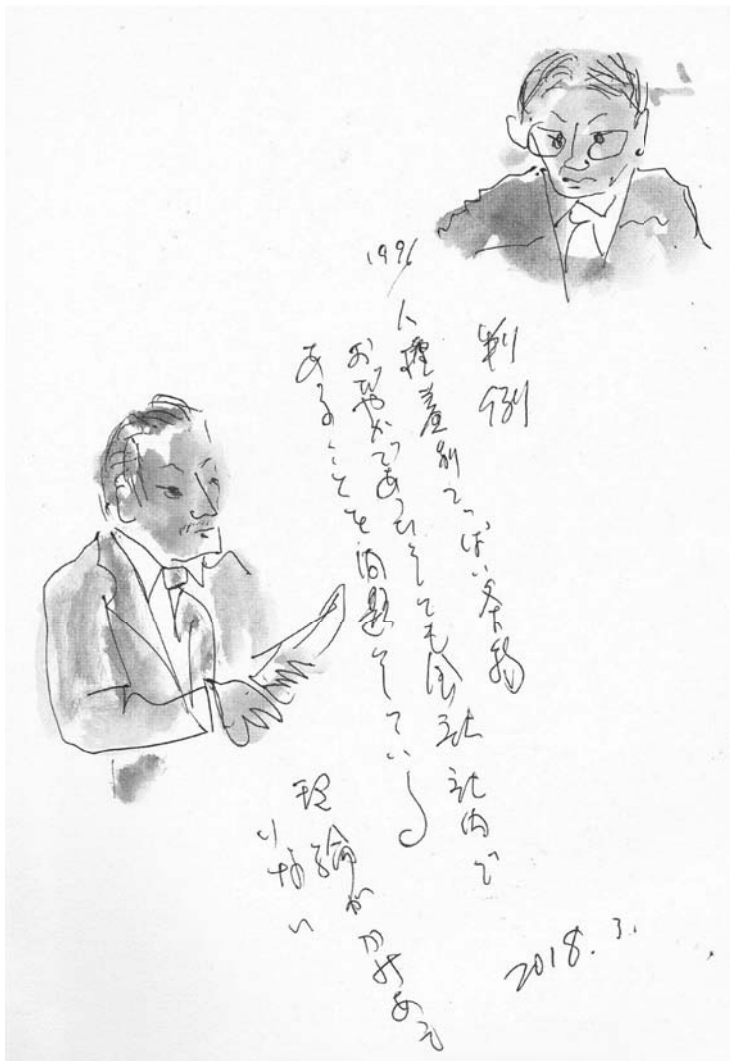 判例
1996
人種差別てっぱい条約
おだやかであったとしても会社社内で
あることを問題としている
理論がかみあって
いない
2018.3.